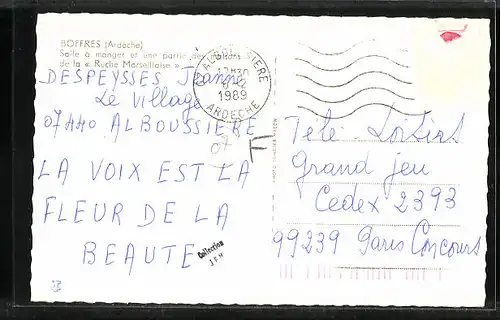 BOFFRES (Ardèche)
Salle à manger et une partie des maisons
de la « Ruche Marseillaise »
DESPEYSSES Jeanne
Le Village
07440 ALBOUSSIERE
LA VOIX EST LA
FLEUR DE LA
BEAUTE
07 ALBOUSSIERE
1989
ARDECHE
07
Télé Loisirs
Grand jeu
Cedex 2393
99239 Paris Concours
Collection
J F H